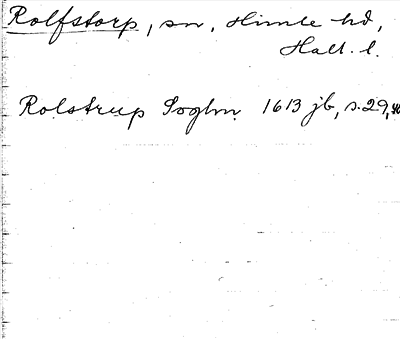 Rolfstorp, sn, Himle hd,
Hall. l.
Rolstrup Soghn 1613 jb, s. 29,